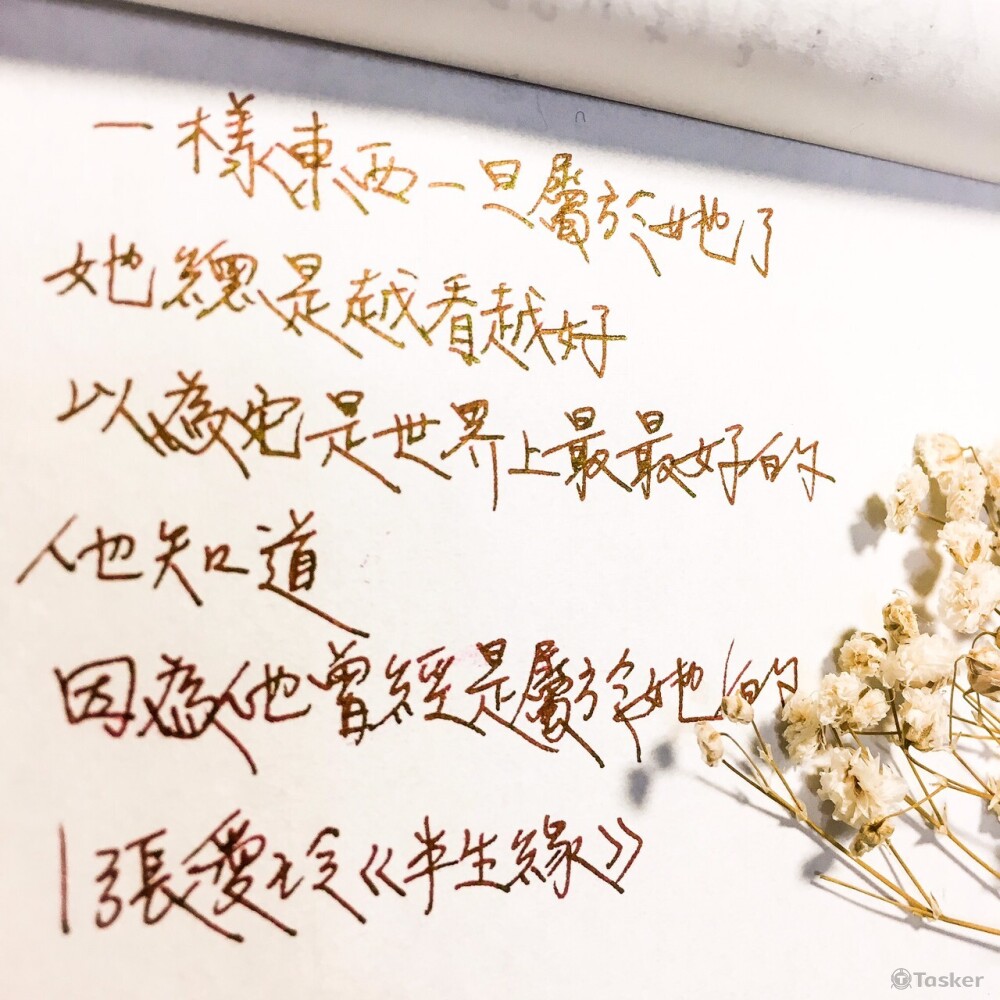 一樣東西一旦屬於她了
她總是越看越好
以為它是世界上最最好的
他知道
因為他曾經是屬於她的
|張愛玲《半生緣》
Tasker